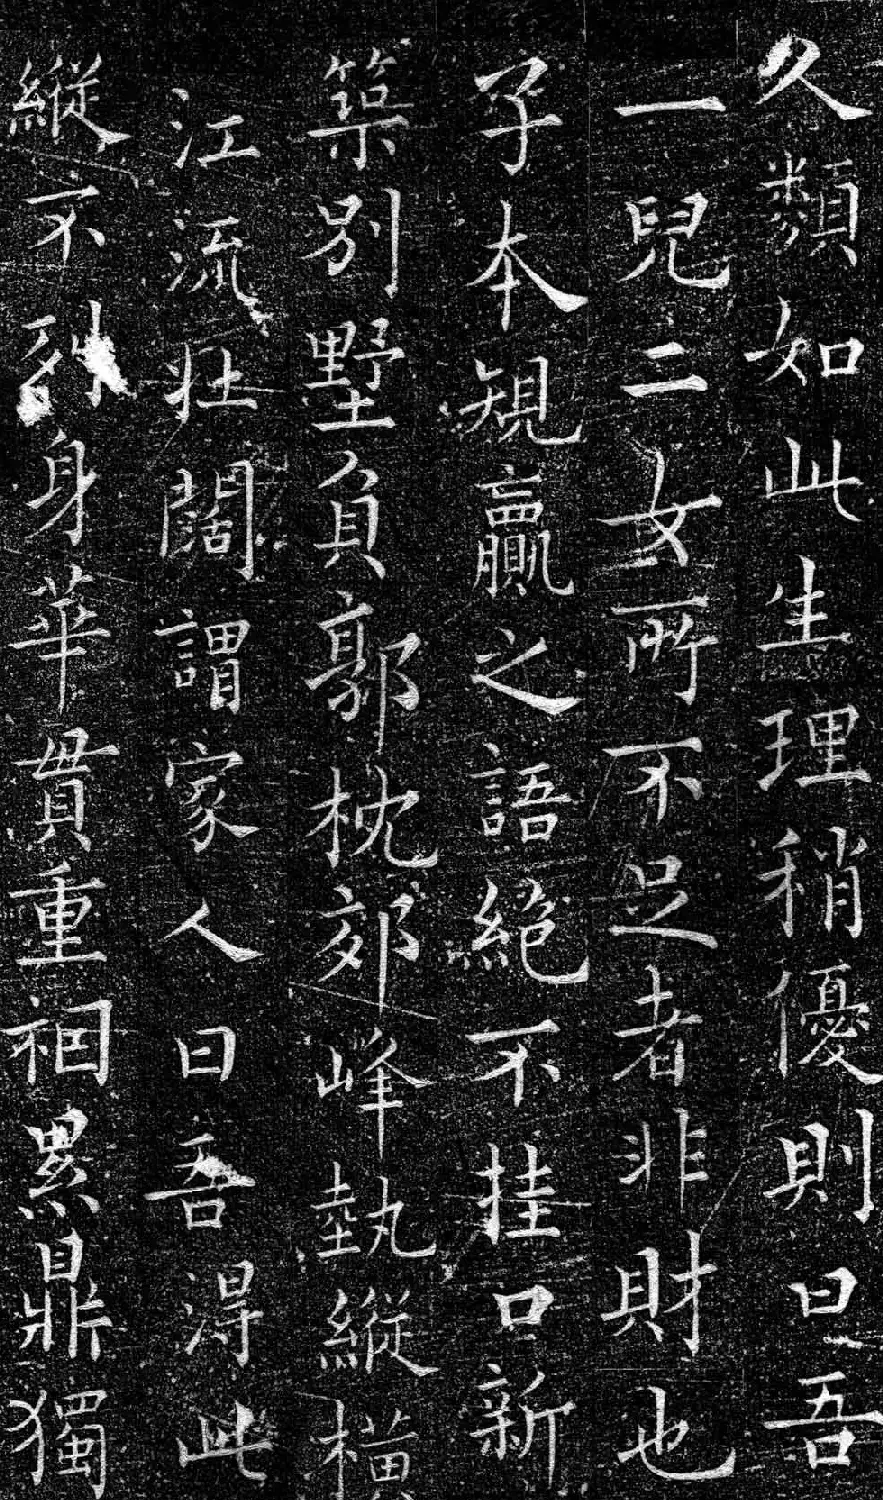 久類如此生理稍優則曰吾
一兒二女所不足者非財也
子本規贏之語絕不挂口新
築別墅負郭枕郊峰埶縱橫
江流壯闊謂家人曰吾得此
縱不列身華貫重裀累鼎獨